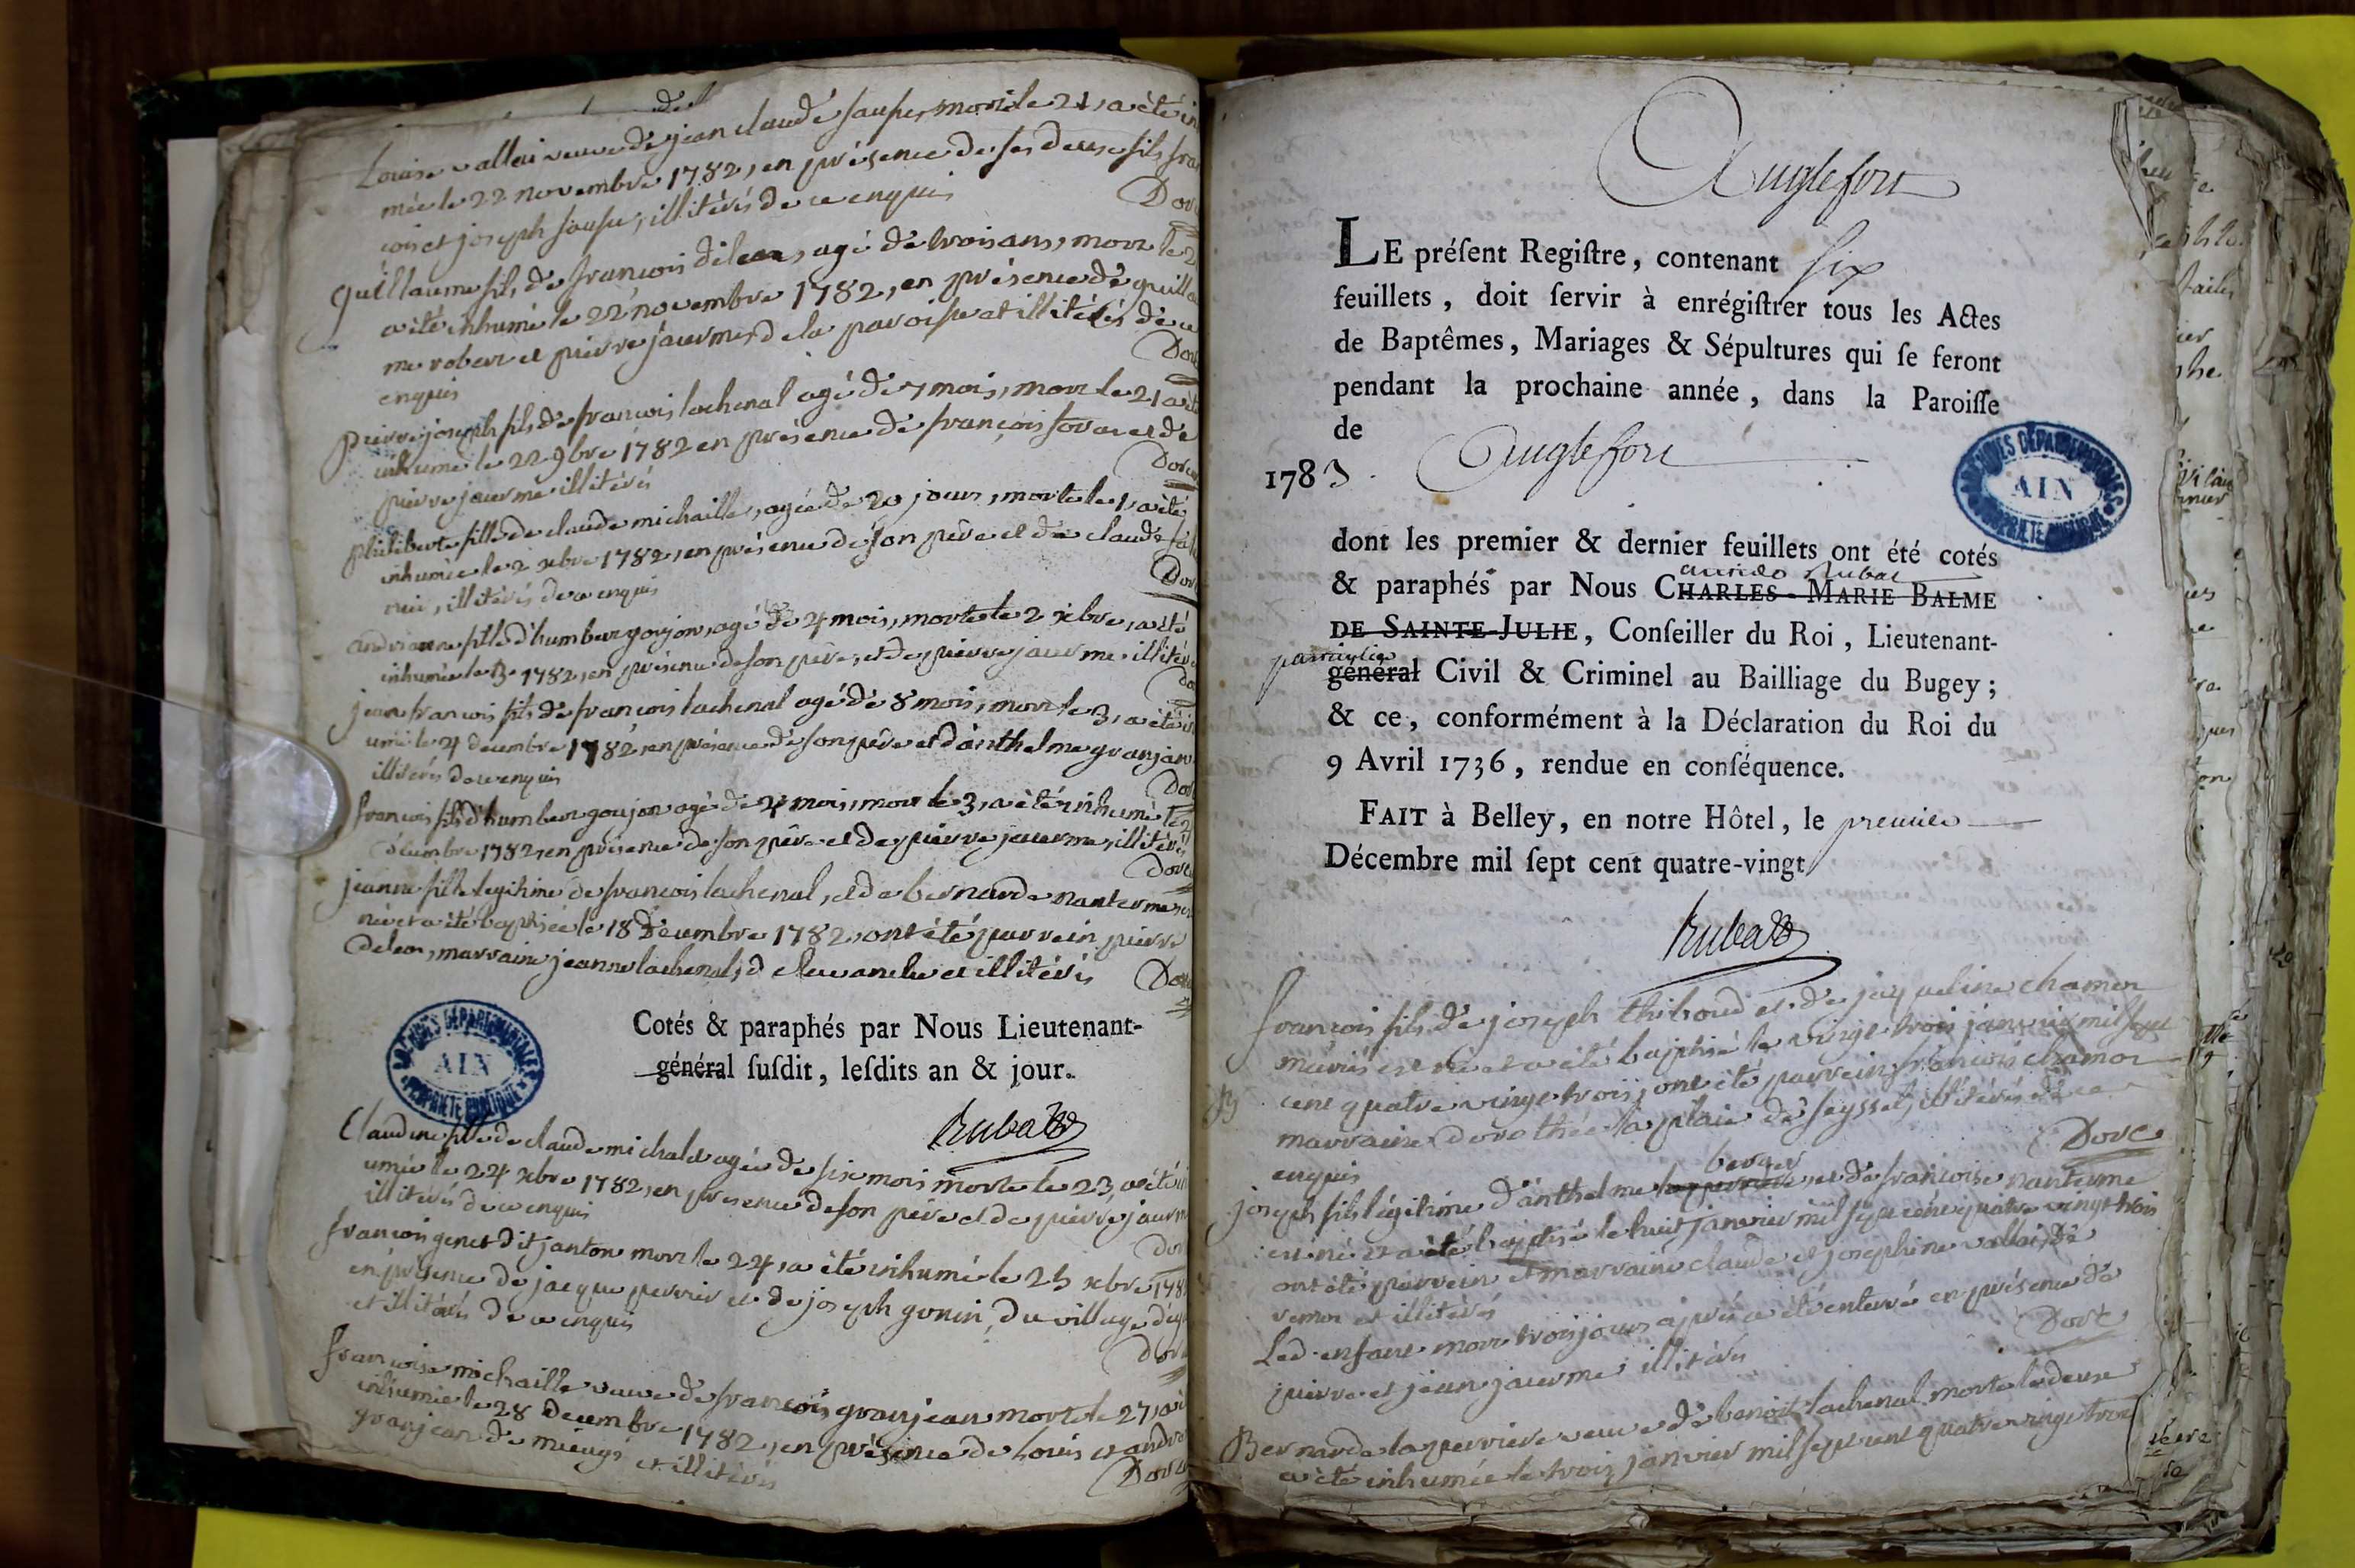 Louise vallai veuve de jean claude saupe, morte le 21, a été in
mée le 22 novembre 1782, en présence de ses deux fils fran
cois et joseph saupe, illitérés de ce enquis
Dorc
Guillaume fils de françois deleon, agé de trois ans, mort le 2
a été inhumé le 22 novembre 1782, en présence de guilla
me robert et pierre jauerme, de la paroisse et illitérés de ce
enquis
Dorc
pierre joseph fils de francois lachenal agé de 7 mois, mort le 21 a été
inhumé le 22 9bre 1782 en présence de françois et de
pierre jauerme illitérés
Dorc
philiberte fille de claude michaille, agée de 20 jours, morte le 1, a été
inhumée le 2 xbre 1782, en présence de son père et de claude
illitérés de ce enquis
Dorc
andrianne fille d'humbert goujon, agé de 4 mois, morte le 2 xbre, a été
inhumée le 3e 1782, en présence de son père, et de pierre jauerme illitérés
Dorc
jean francois fils de francois lachenal agé de 8 mois, mort le 3, a été in
umé le 4 decembre 1782, en présence de son père et d'anthelme granjan
illitérés de ce enquis
Dorc
francois fils d'humbert goujon agé de 4 mois, mort le 3, a été inhumé le 4
decembre 1782, en présence de son père et de pierre jauerme, illitérés
Dorc
jeanne fille legitime de francois lachenal, et de bernarde nanterme est
née et a été baptisée le 18 decembre 1782, ont été parrein pierre
deleon, marraine jeanne lachenal, et illitérés
Dorc
Cotés & paraphés par Nous Lieutenant-
général ſuſdit, leſdits an & jour.
Rubat
Claudine fille de claude michalet agée de six mois morte le 23, a été in
umée le 24 xbre 1782, en présence de son père et de pierre jauerme
illitérés de ce enquis
Dorc
françois genet dit janton mort le 24, a été inhumé le 25 xbre 1782
en présence de jacque perrier et de joseph gonin, du village d'
et illitérés de ce enquis
Dorc
francoise michaille veuve de francois granjean morte le 27, a été
inhumée le 28 decembre 1782, en présence de Louis et andre
granjean de mieugi et illitérés
Dorc
Anglefort
LE préſent Regiſtre, contenant six
feuillets, doit ſervir à enrégiſtrer tous les Actes
de Baptêmes, Mariages & Sépultures qui ſe feront
pendant la prochaine année, dans la Paroiſſe
de
1783 Anglefort
AIN
dont les premier & dernier feuillets ont été cotés
Rubat
& paraphés par Nous CHARLES-MARIE BALME
DE SAINTE-JULIE, Conſeiller du Roi, Lieutenant-
particulier
général Civil & Criminel au Bailliage du Bugey;
& ce, conformément à la Déclaration du Roi du
9 Avril 1736, rendue en conſéquence.
FAIT à Belley, en notre Hôtel, le premier
Décembre mil ſept cent quatre-vingt
Rubat
françois fils de joseph thiboud et de jaqueline chamon
mariés est né et a été baptisé le vingt trois janvier mil sept
B
cent quatre vingt trois, ont été parrein francois chamon
marraine dorothée la plaie de seyssel, illitérés de ce
enquis
Dorc
berger
joseph fils légitime d'anthelme et de françoise nanterme
est né et a été baptisé le huit janvier mil sept cent quatre vingt trois
ont été parrein et marraine claude et josephine vallai, de
vemor et illitérés
Dorc
Led. enfant mort trois jours après a été enterré en présence de
pierre et jean jauerme illitérés
Bernarde laperriere veuve de benoit lachenal morte le deux
a été inhumée le trois janvier mil sept cent quatre vingt trois